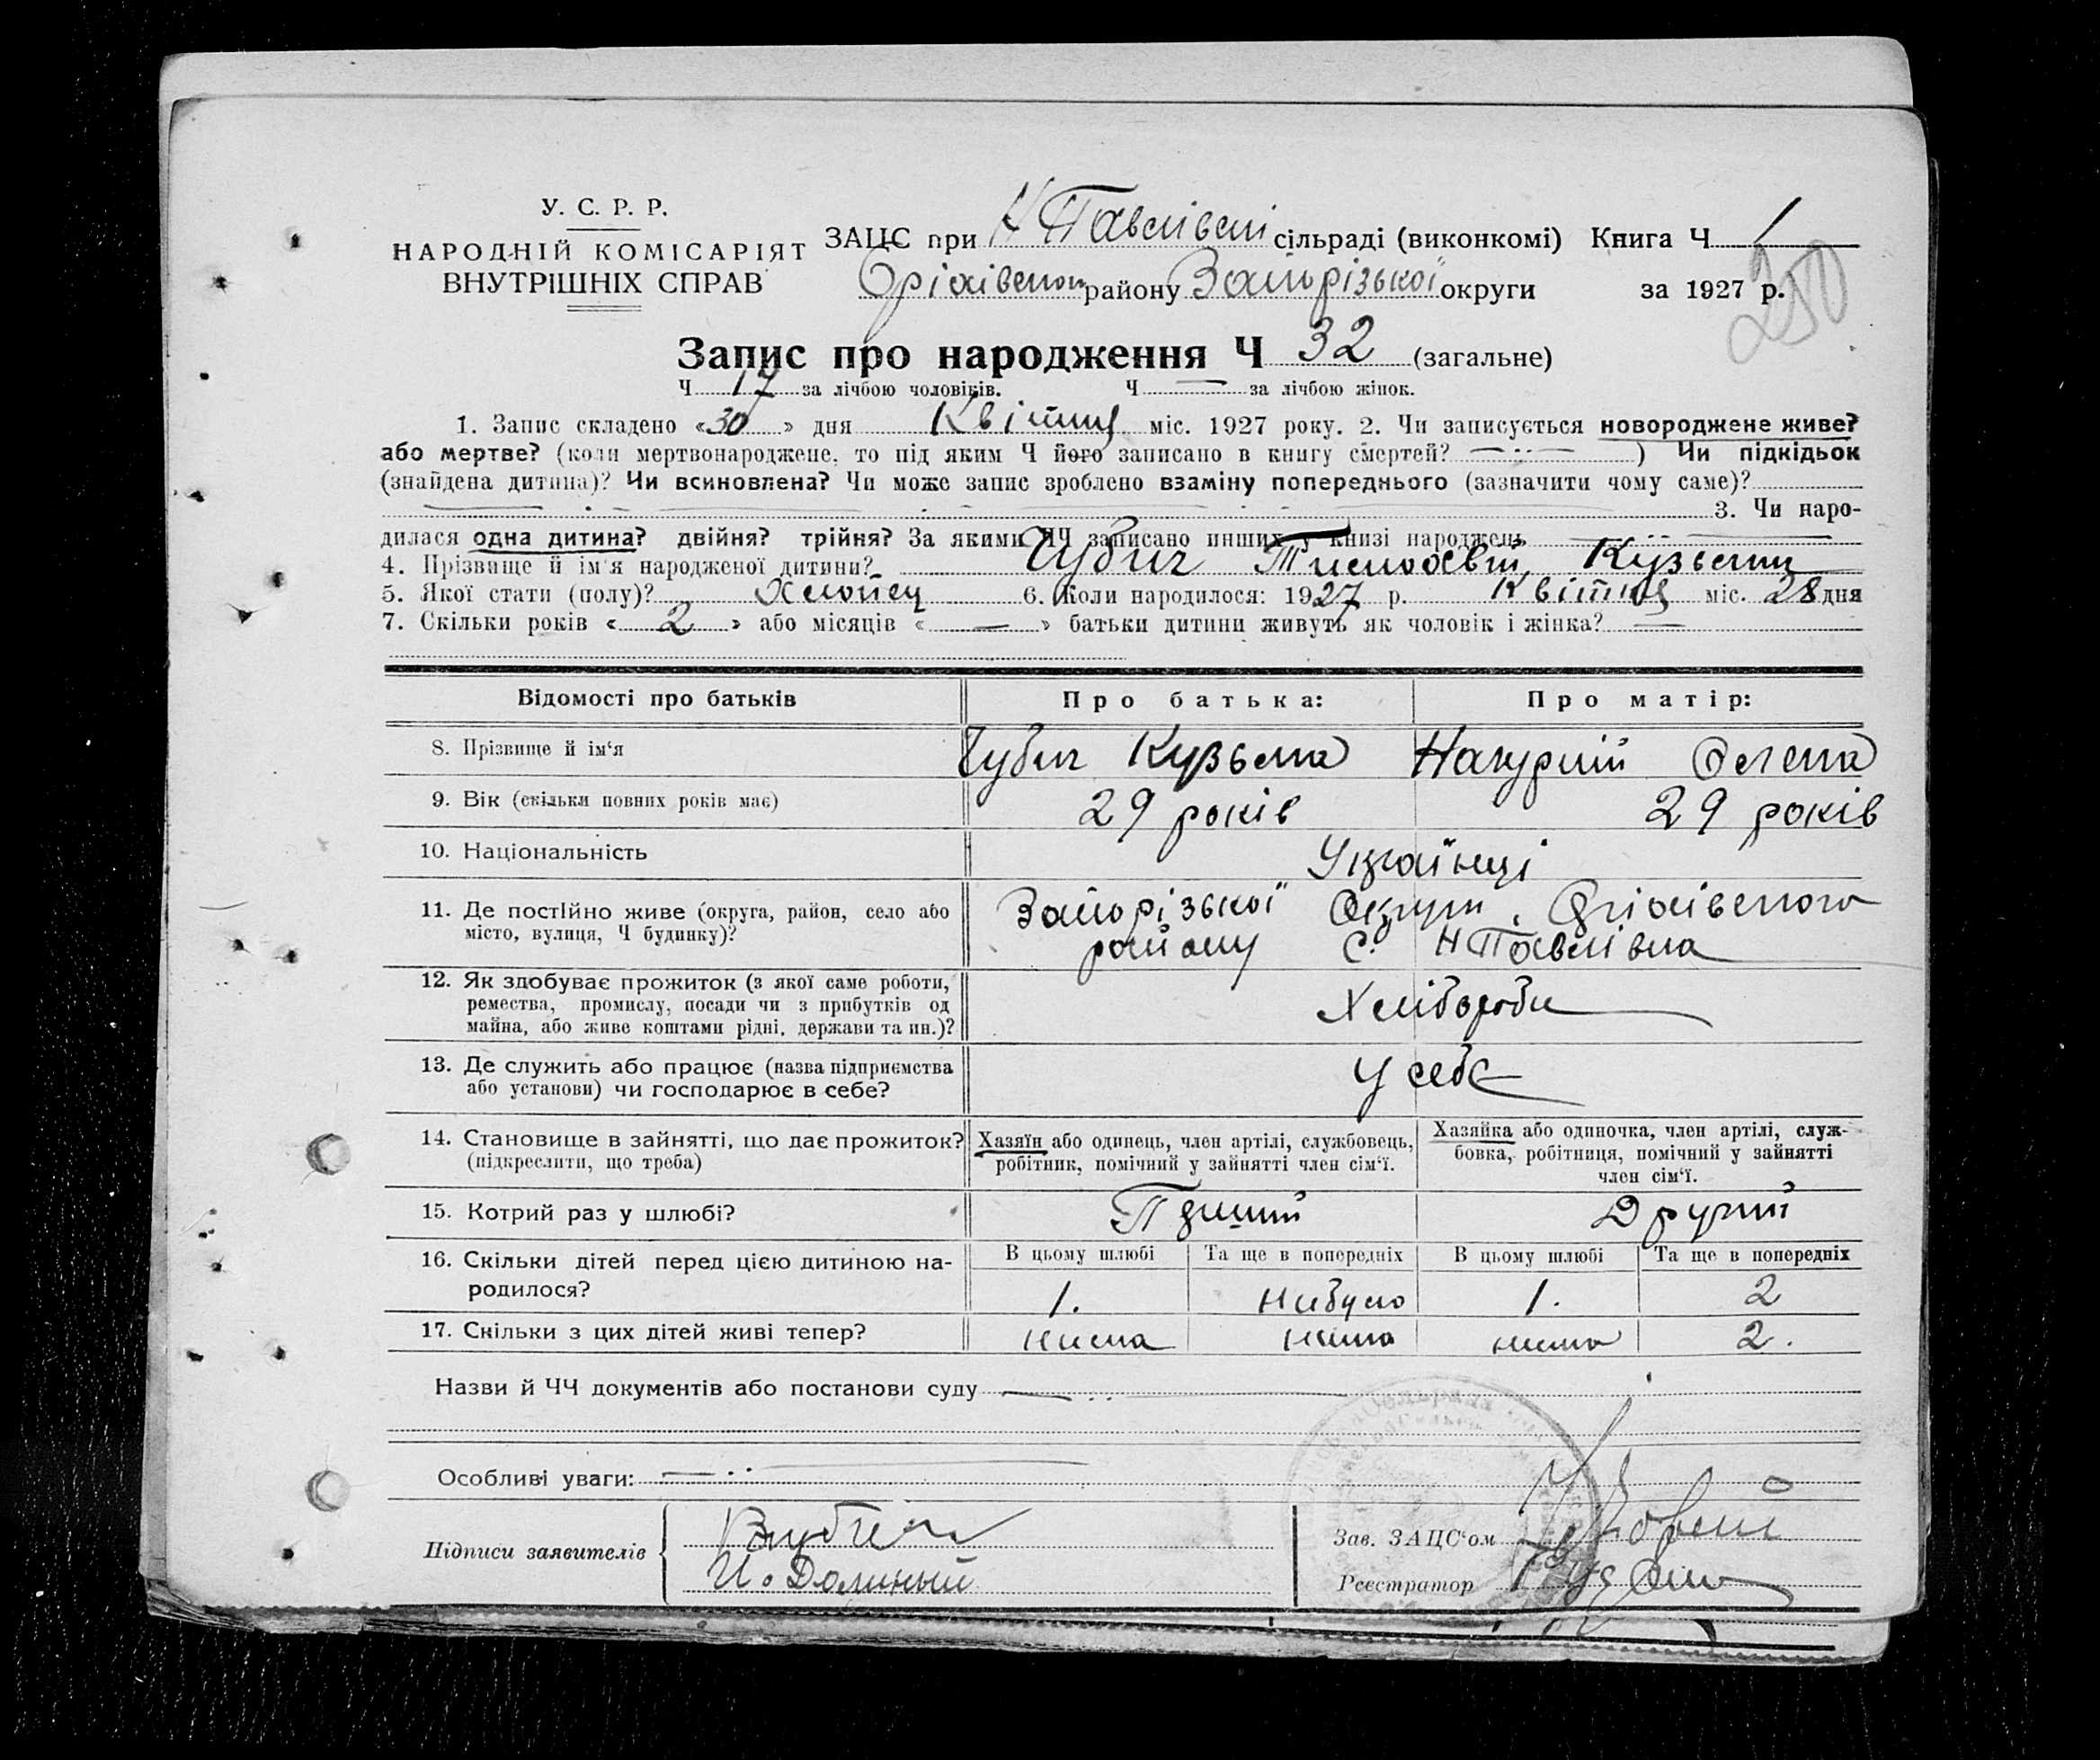 У. С. Р. Р.
НАРОДНІЙ КОМІСАРІЯТ
ВНУТРІШНІХ СПРАВ
ЗАЦС при Н Павлівській сільраді (виконкомі) Книга Ч 1
району Запорізької округи за 1927 р.
250
Запис про народження Ч 32 (загальне)
Ч 17 за лічбою чоловіків. Ч — за лічбою жінок.
1. Запис складено «30» дня Квітня міс. 1927 року. 2. Чи записується новороджене живе?
або мертве? (коли мертвонароджене, то під яким Ч його записано в книгу смертей? ) Чи підкідьок
(знайдена дитина)? Чи всиновлена? Чи може запис зроблено взаміну попереднього (зазначити чому саме)?
3. Чи наро-
дилася одна дитина? двійня? трійня? За якими ЧЧ записано инших у книзі народжень
4. Прізвище й ім'я народженої дитини? Чубич Кузьмич
5. Якої стати (полу)? Хлопец 6. Коли народилося: 1927 р. Квітня міс. 28 дня
7. Скільки років «2» або місяців «—» батьки дитини живуть як чоловік і жінка? —
Відомості про батьків Про батька: Про матір:
8. Прізвище й ім'я Чубич Кузьма Олена
9. Вік (скільки повних років має) 29 років 29 років
10. Національність Українці
11. Де постІйно живе (округа, район, село або Запорізької Округи, Оріхівського
місто, вулиця, Ч будинку)? району с. Н Павлівка
12. Як здобуває прожиток (з якої саме роботи,
ремества, промислу, посади чи з прибутків од Хлібороби
майна, або живе коштами рідні, держави та ин.)?
13. Де служить або працює (назва підприємства У себе
або установи) чи господарює в себе?
14. Становище в зайнятті, що дає прожиток? Хазяїн або одинець, член артілі, службовець, Хазяйка або одиночка, член артілі, служ-
(підкреслити, що треба) робітник, помічний у зайнятті член сім'ї. бовка, робітниця, помічний у зайнятті
член сім'ї.
15. Котрий раз у шлюбі? Перший Другий
16. Скільки дітей перед цією дитиною на- В цьому шлюбі Та ще в попередніх В цьому шлюбі Та ще в попередніх
родилося? 1. Небуло 1. 2
17. Скільки з цих дітей живі тепер? нема нема нема 2.
Назви й ЧЧ документів або постанови суду
Особливі уваги:
Підписи заявителів
И. Долиный
Зав. ЗАЦС'ом
Реєстратор